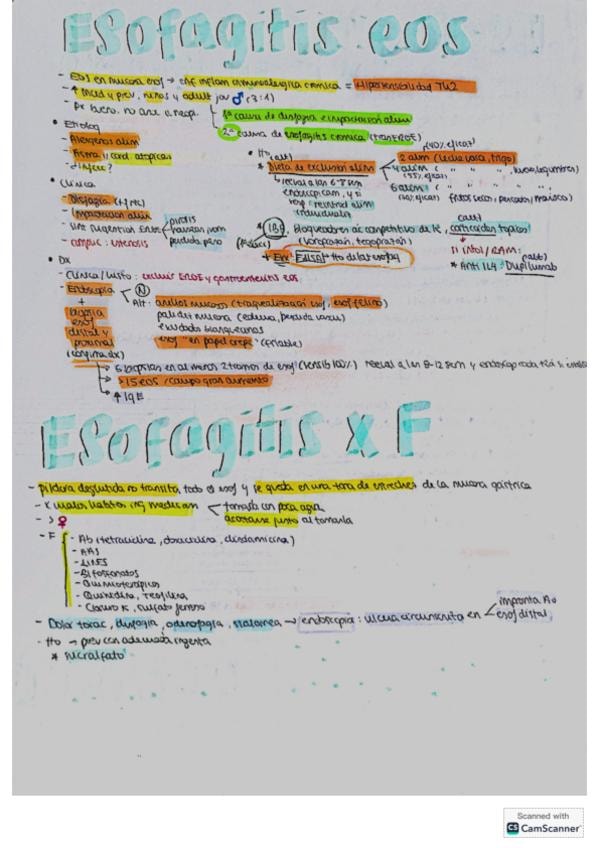 Esofagitis eos
- EOS en mucosa esof → enf inflam inmunoalergica cronica = Hipersensibilidad TH2
- ↑ Incid y prev, niños y adult jov ♂ (3:1)
- Px bueno, no anc a neopl.
1ª causa de disfagia e impactacion alim
2ª causa de esofagitis cronica (tras ERGE)
• Etiolog
- Alergenos alim
- Asma / cond. atopicas
- ¿Infecc?
• Clinica
- Disfagia (+frec)
- Impactacion alim
pirosis
nauseas, vom
perdida peso
- Complic: estenosis
• Tto
* Dieta de exclusion alim
2 alim (leche vaca, trigo)
4 alim ( " " " , huevo, legumbres)
6 alim ( " " " " frutos secos, pescados/marisco)
reeval a las 6
endoscopicam, y si
resp: reintrod alim
individualm
* IBP, bloqueadores ac competitivo de K, corticoides topicos
(Vonoprazan, tegoprazan)
SI intol/RAM:
* Anti IL4: Dupilumab
• Dx
- Clinica / histo: excluir ERGE y gastroenteritis eos
- Endoscopia
N
Alt: anillos mucosos (traquealizacion esof, esof felino)
palidez mucosa (edema, perdida vasc)
exudados blanquecinos
esof "en papel crepe" (friable)
+
biopsia
esof
distal y
proximal
(confirma dx)
→ 6 biopsias en al menos 2 tramos de esof (sensib 100%) reeval a las 8-12 sem y endoscop
→ >15 eos / campo gran aumento
→ ↑ IgE
Esofagitis x F
- Pildora deglutida no transita todo el esof y se queda en una zona de estrechez de la mucosa gastrica
- x malos habitos ing medicam
tomarla con poca agua
acostarse justo al tomarla
- > ♀
- F
- Ab (tetraciclina, doxiciclina, clindamicina)
- AAS
- AINES
- Bifosfonatos
- Quimioterapicos
- Quinidina, Teofilina
- Cloruro K, sulfato ferroso
- Dolor torac, disfagia, odinofagia, sialorrea → endoscopia: ulcera circunscrita en
impronta Ao
esof distal
- Tto → prev con adecuada ingesta
* sucralfato
Scanned with
CS CamScanner